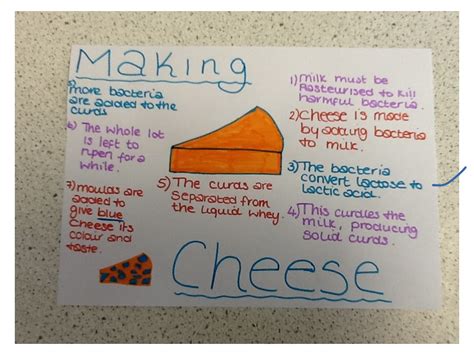 Making
1) Milk must be
Pasteurised to kill
harmful bacteria.
2) Cheese is made
by adding bacteria
to milk.
3) The bacteria
convert lactose to
lactic acid.
4) This curdles the
milk, producing
solid curds.
5) The curds are
Separated from
the liquid whey.
more bacteria
are added to the
curds
6) The whole lot
is left to
ripen for a
while.
7) moulds are
added to
give blue
Cheese its
colour and
taste.
Cheese